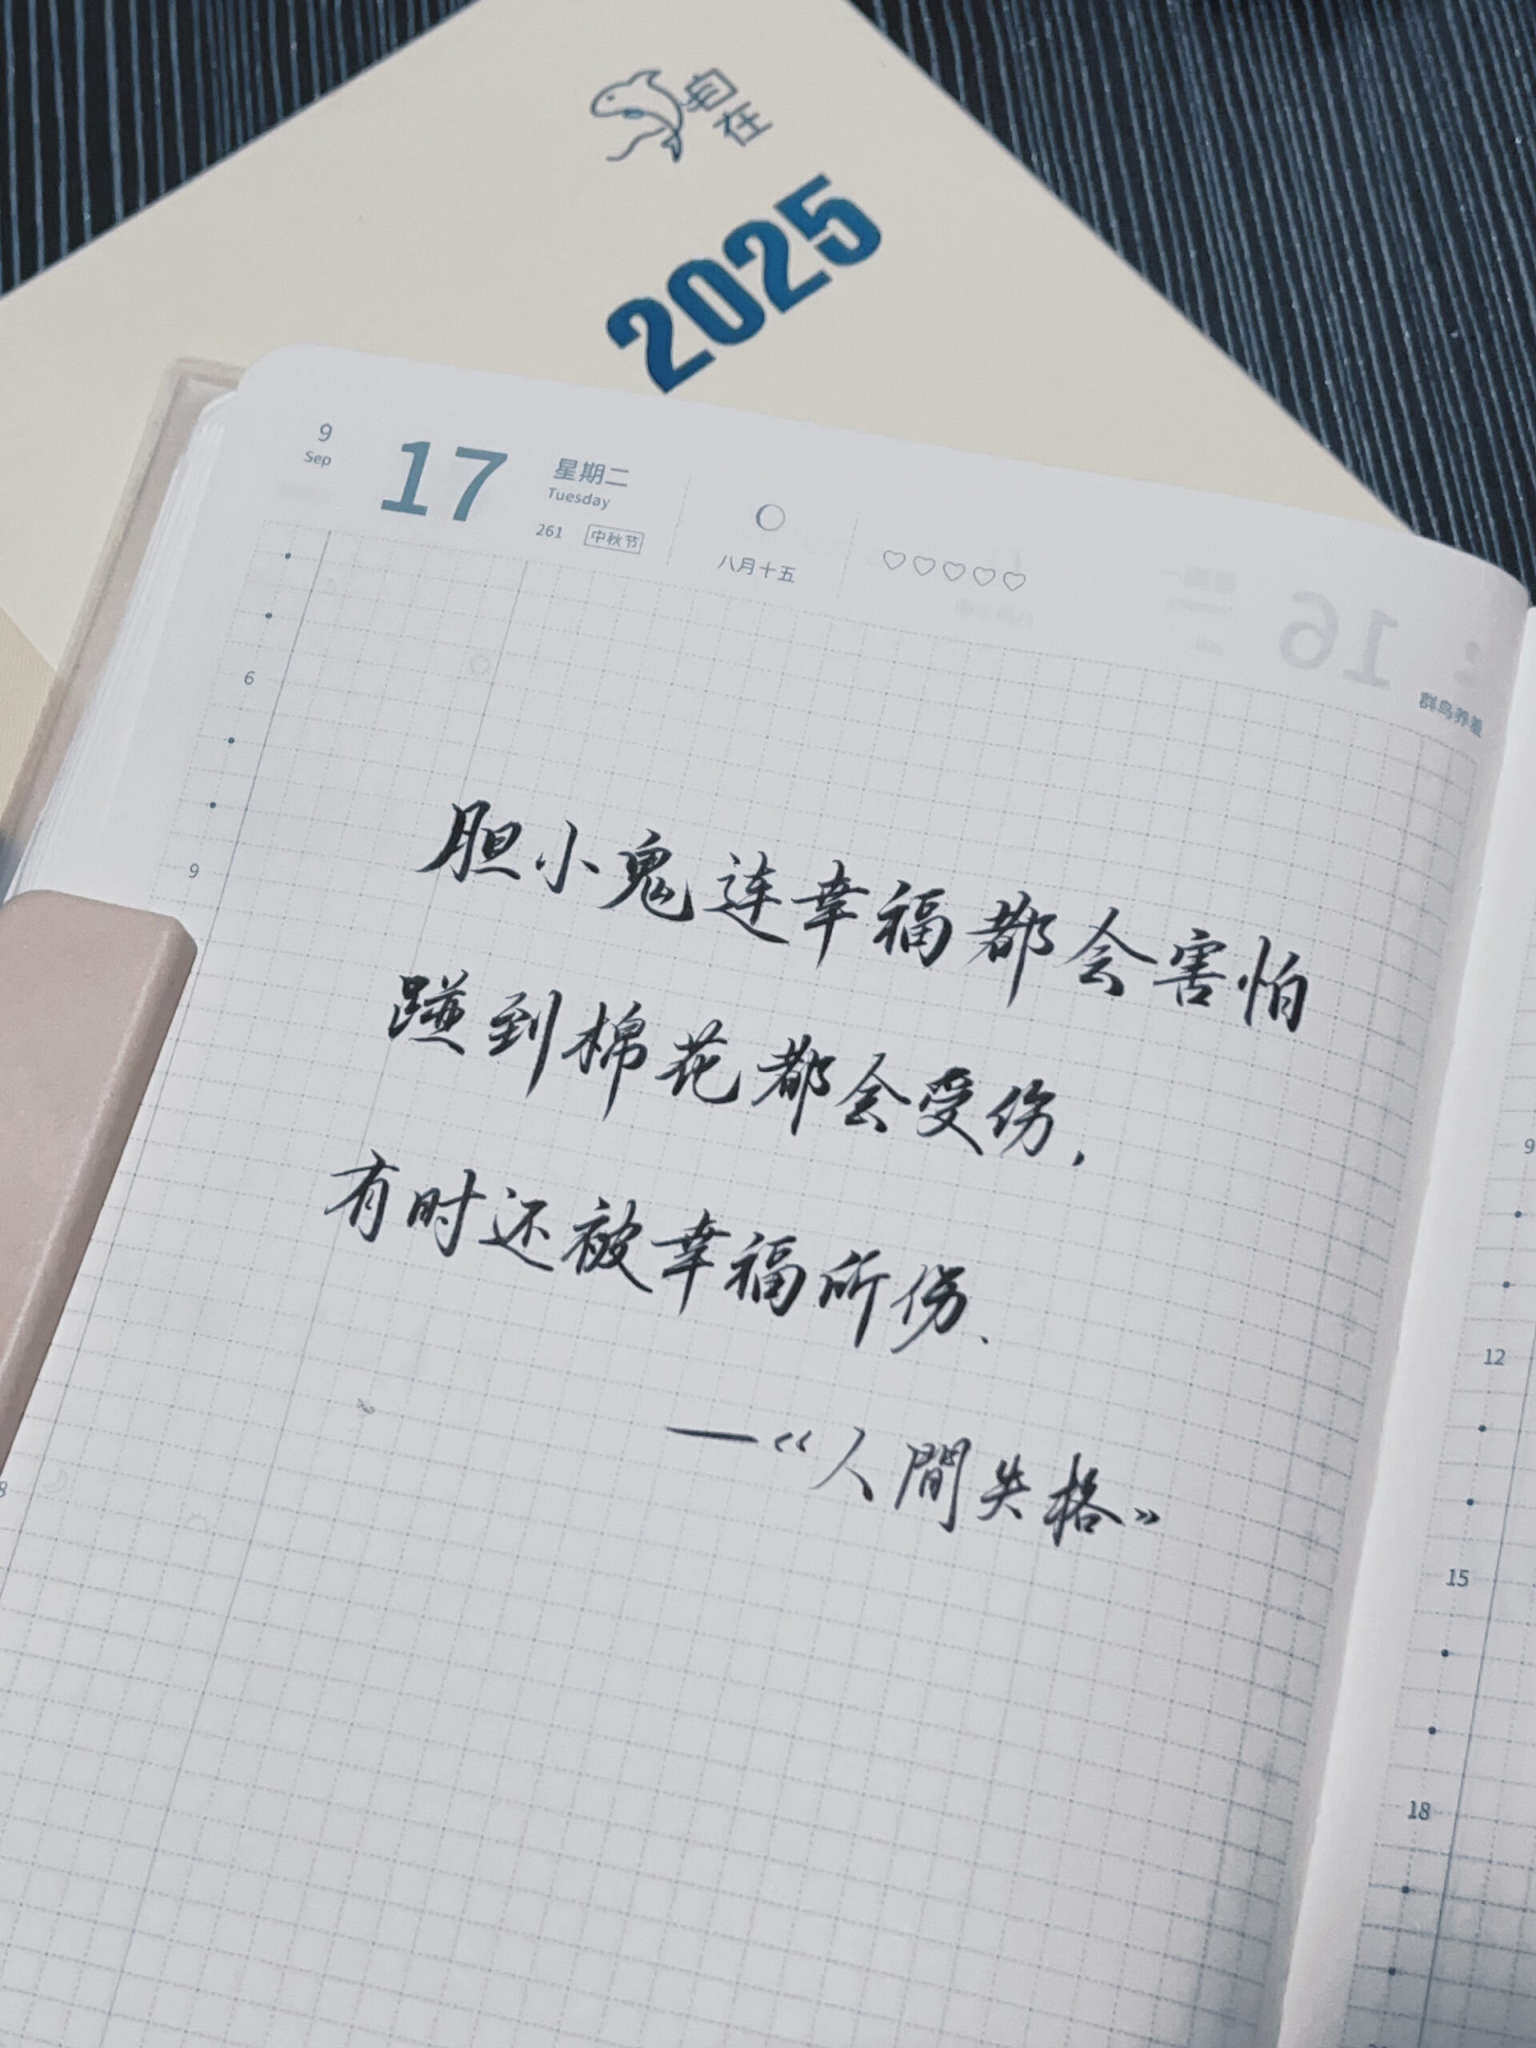 自在
2025
9
Sep
17
星期二
Tuesday
261 中秋节
八月十五
16
群鸟养羞
6
9
胆小鬼连幸福都会害怕
碰到棉花都会受伤，
有时还被幸福所伤、
—《人間失格》
8
9
12
15
18